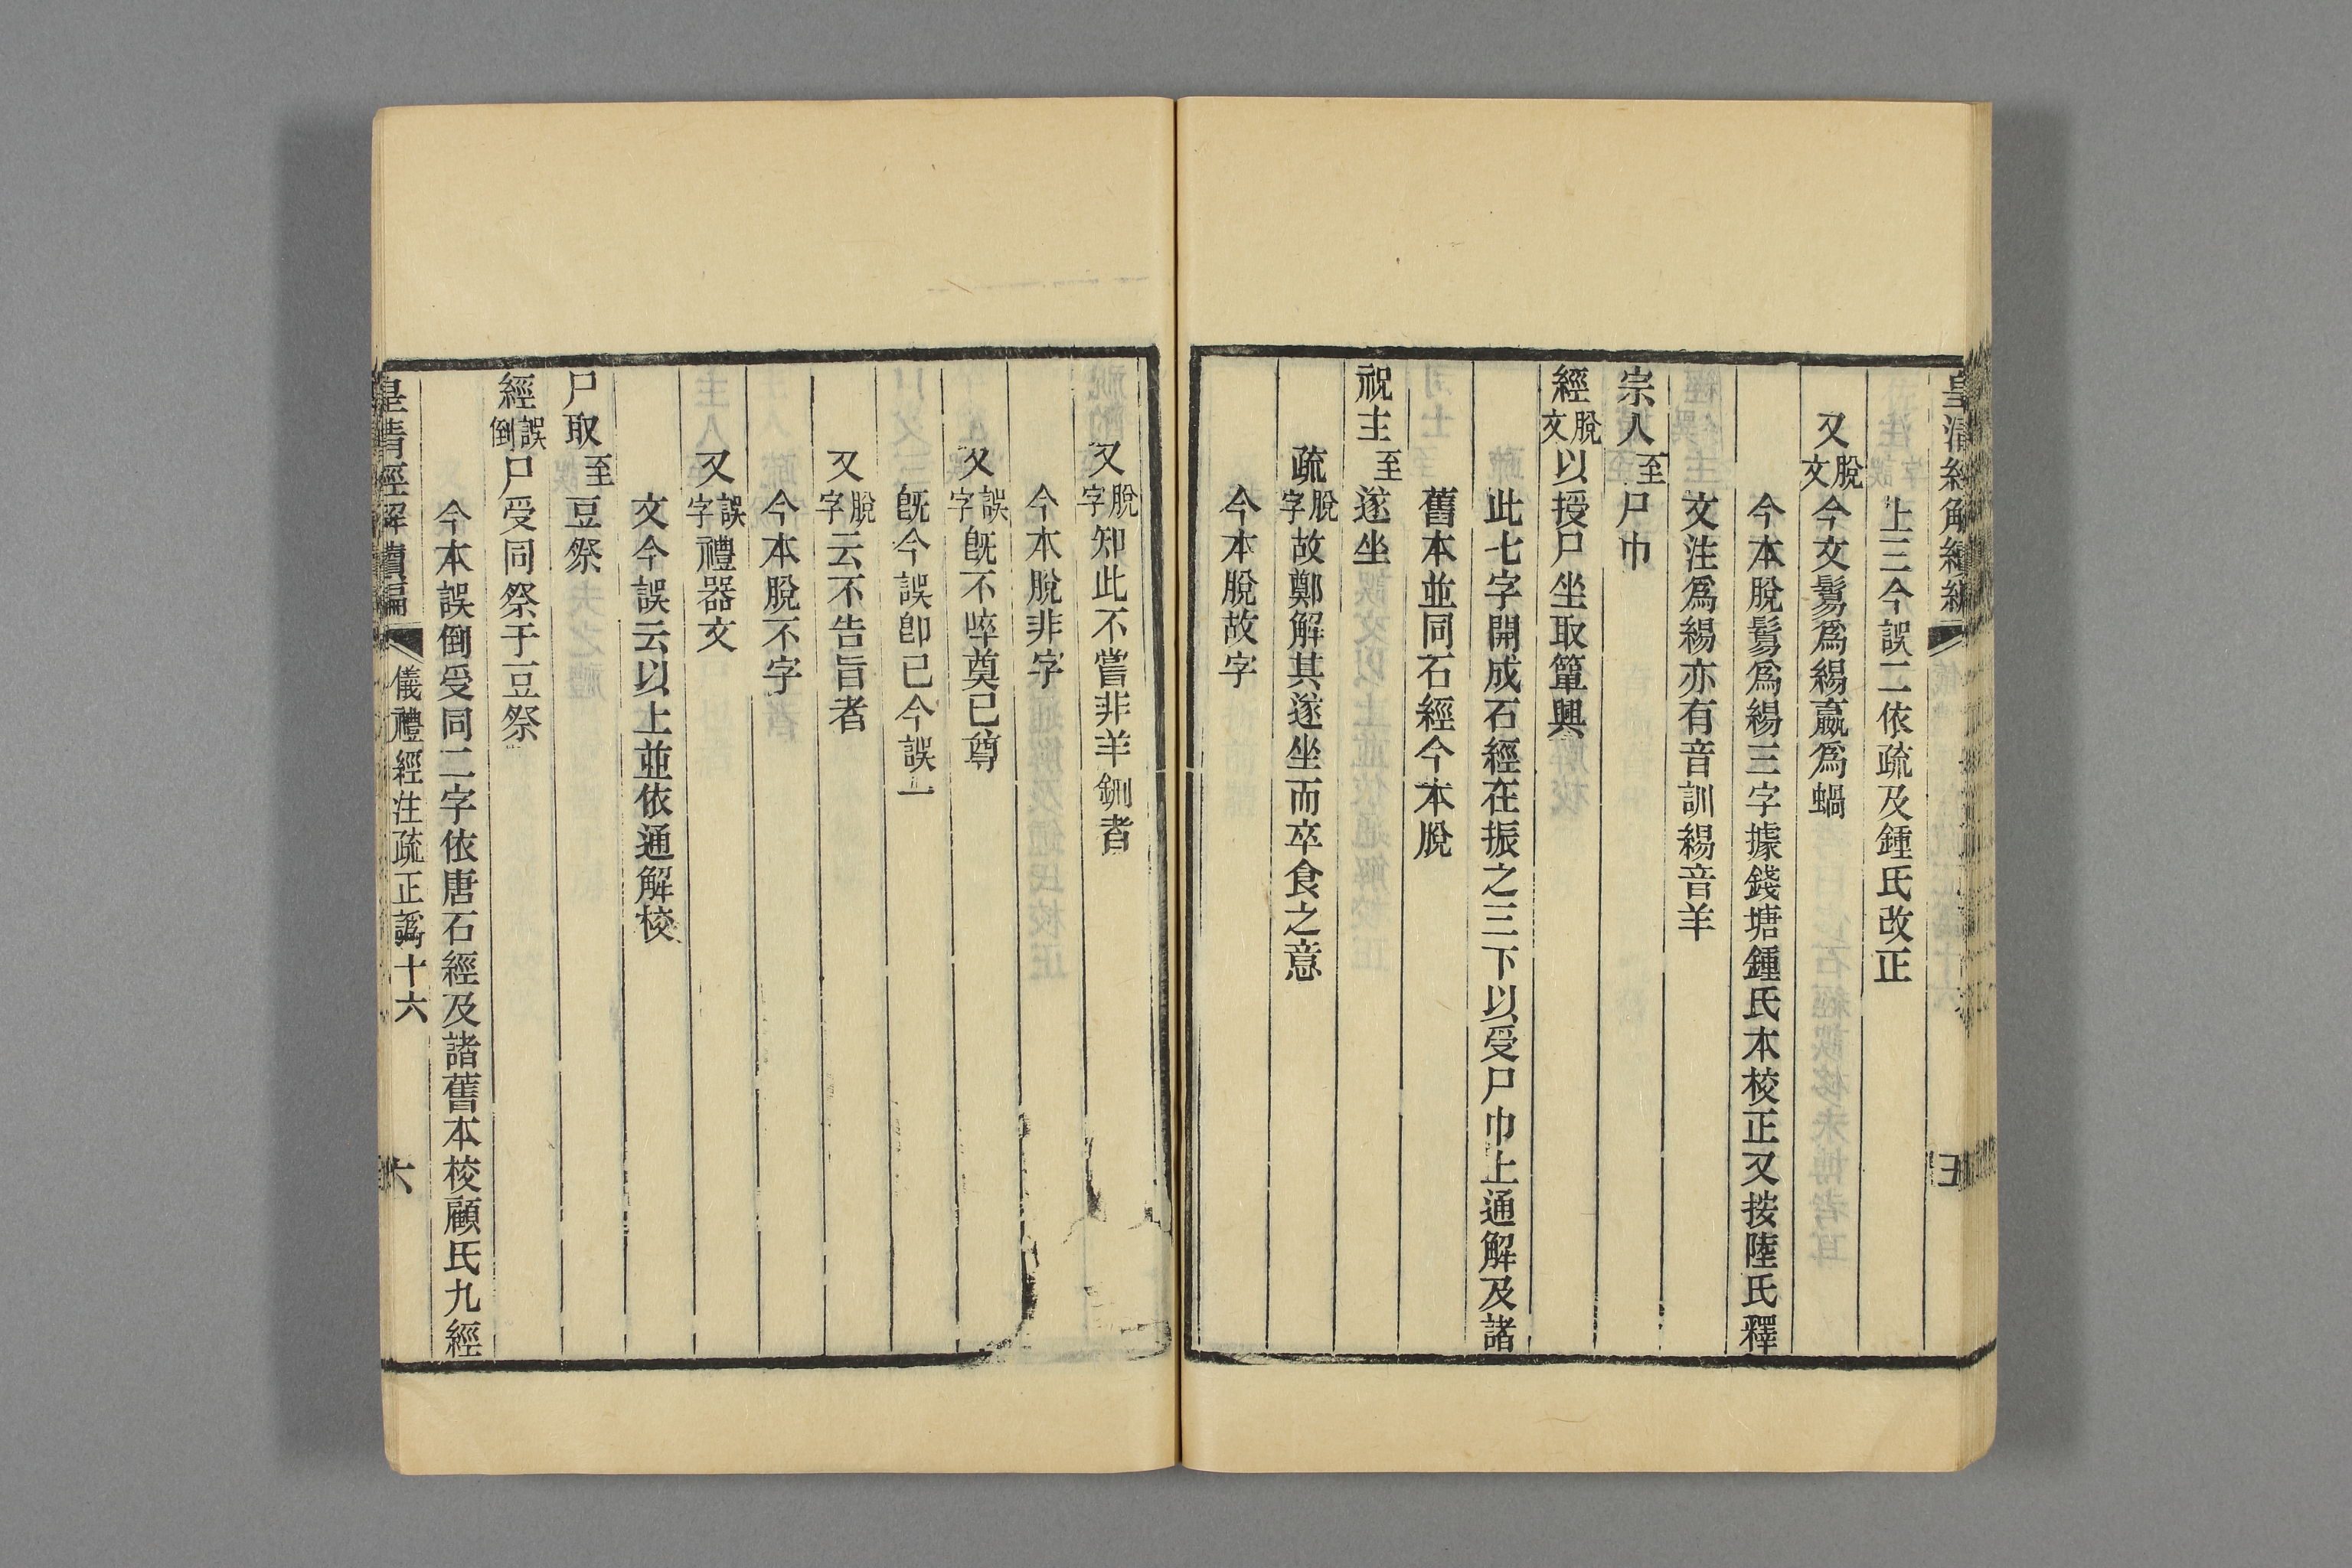 上三今誤二依疏及鍾氏改正
又脫文今文鬄爲緆蠃爲蝸
今本脫鬄爲緆三字據錢塘鍾氏本校正又按陸氏釋
文注爲緆亦有音訓緆音羊
宗人至尸巾
經脫文以授尸坐取簞興
此七字開成石經在振之三下以受尸巾上通解及諸
舊本並同石經今本脫
祝主至遂坐
疏脫字故鄭解其遂坐而卒食之意
今本脫故字
又脫字知此不嘗非羊鉶者
今本脫非字
又誤字旣不啐奠已尊
旣今誤卽已今誤一
又脫字云不告旨者
今本脫不字
又誤字禮器文
文今誤云以上並依通解校
尸取至豆祭
經誤倒尸受同祭于豆祭
今本誤倒受同二字依唐石經及諸舊本校顧氏九經
皇清經解續編 儀禮經注疏正譌十六 六